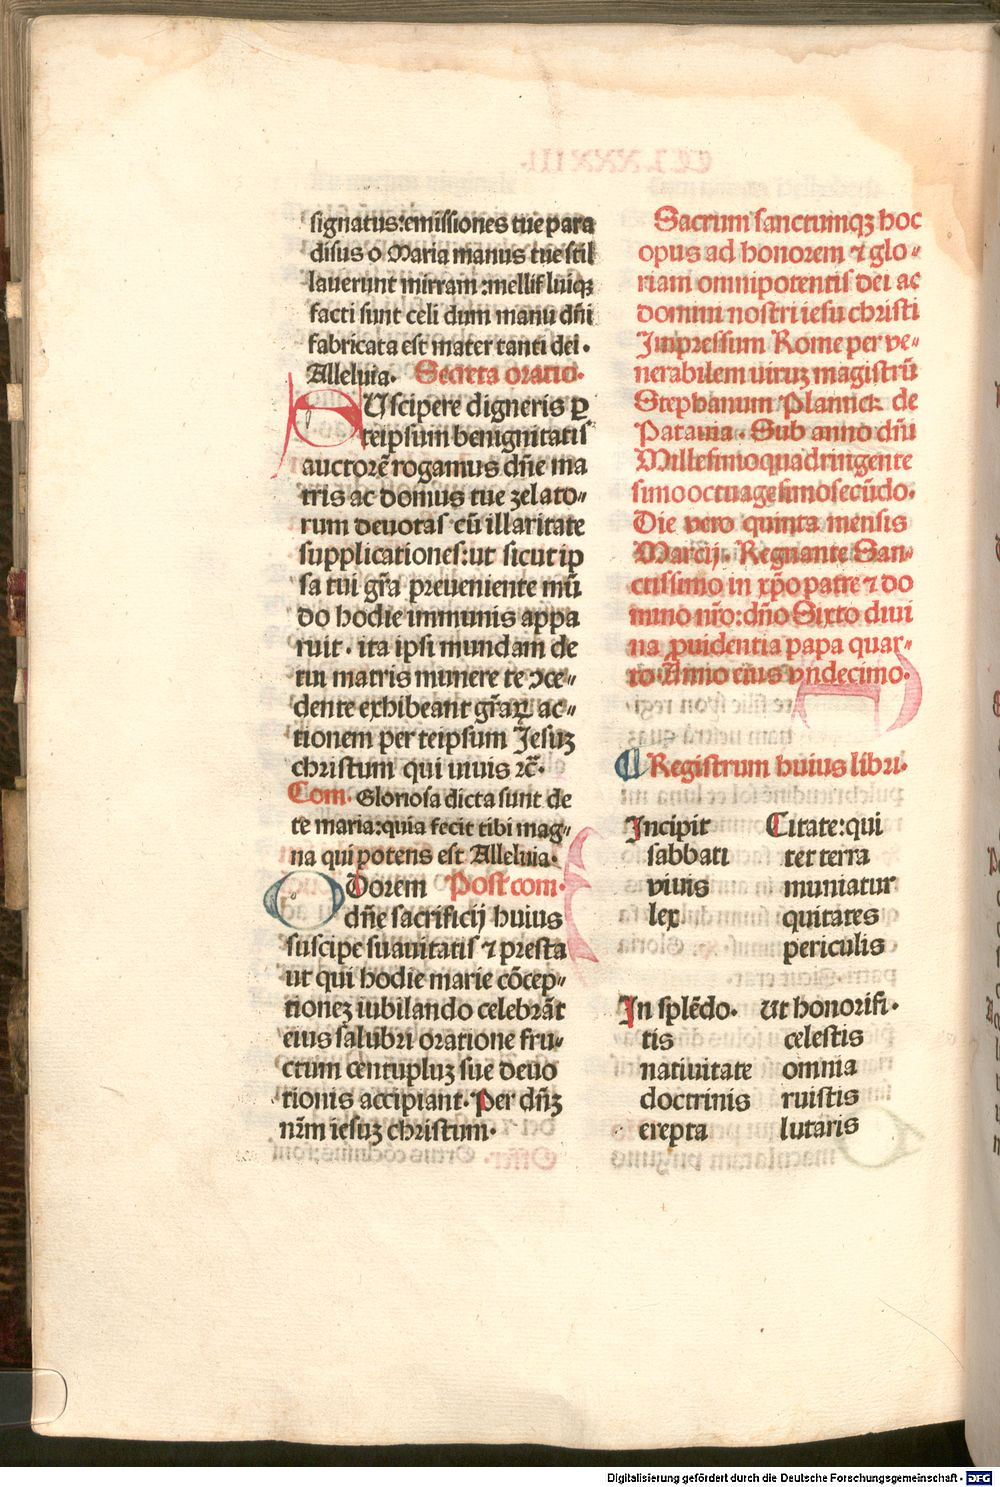 signatus:emissiones tue para
disus o Maria manus tue stil
lauerunt mirram:mellifluiqʒ
facti sunt celi dum manu dñi
fabricata est mater tanti dei.
Alleluia. Secreta oratio.
SUscipere digneris ꝑ
teipsum benignitatis
auctorẽ rogamus dñe ma
tris ac domus tue zelato-
rum deuotas cũ illaritate
supplicationes:ut sicut ip
sa tui gr̃a preueniente mũ
do hodie immunis appa
ruit. ita ipsi mundam de
tui matris munere te ꝯce-
dente exhibeant gr̃aꝝ ac-
tionem per teipsum Jesuʒ
christum qui uiuis ⁊c̃.
Com. Gloriosa dicta sunt de
te maria:quia fecit tibi mag-
na qui potens est Alleluia.
ODorem Post com.
dñe sacrificij huius
suscipe suauitatis ⁊ presta
ut qui hodie marie cõcep-
tioneʒ iubilando celebrãt
eius salubri oratione fru-
ctum centupluʒ sue deuo
tionis accipiant. Per dñʒ
nr̃m iesuʒ christum.
Sacrum sanctumqʒ hoc
opus ad honorem ⁊ glo-
riam omnipotentis dei ac
domini nostri iesu christi
Impressum Rome per ve-
nerabilem uiruʒ magistrũ
Stephanum Plannck de
Patauia. Sub anno dñi
Millesimoquadringente
simooctuagesimosecũdo.
Die vero quinta mensis
Marcij. Regnante San-
ctissimo in xp̃o patre ⁊ do
mino nr̃o:dño Sixto diui
na ꝓuidentia papa quar-
to. Anno eius vndecimo.
Registrum huius libri.
Incipit
sabbati
viuis
lex
Citate:qui
ter terra
muniatur
quitates
periculis
In splẽdo.
tis
natiuitate
doctrinis
erepta
Ut honorifi.
celestis
omnia
ruistis
lutaris
Digitalisierung gefördert durch die Deutsche Forschungsgemeinschaft - DFG